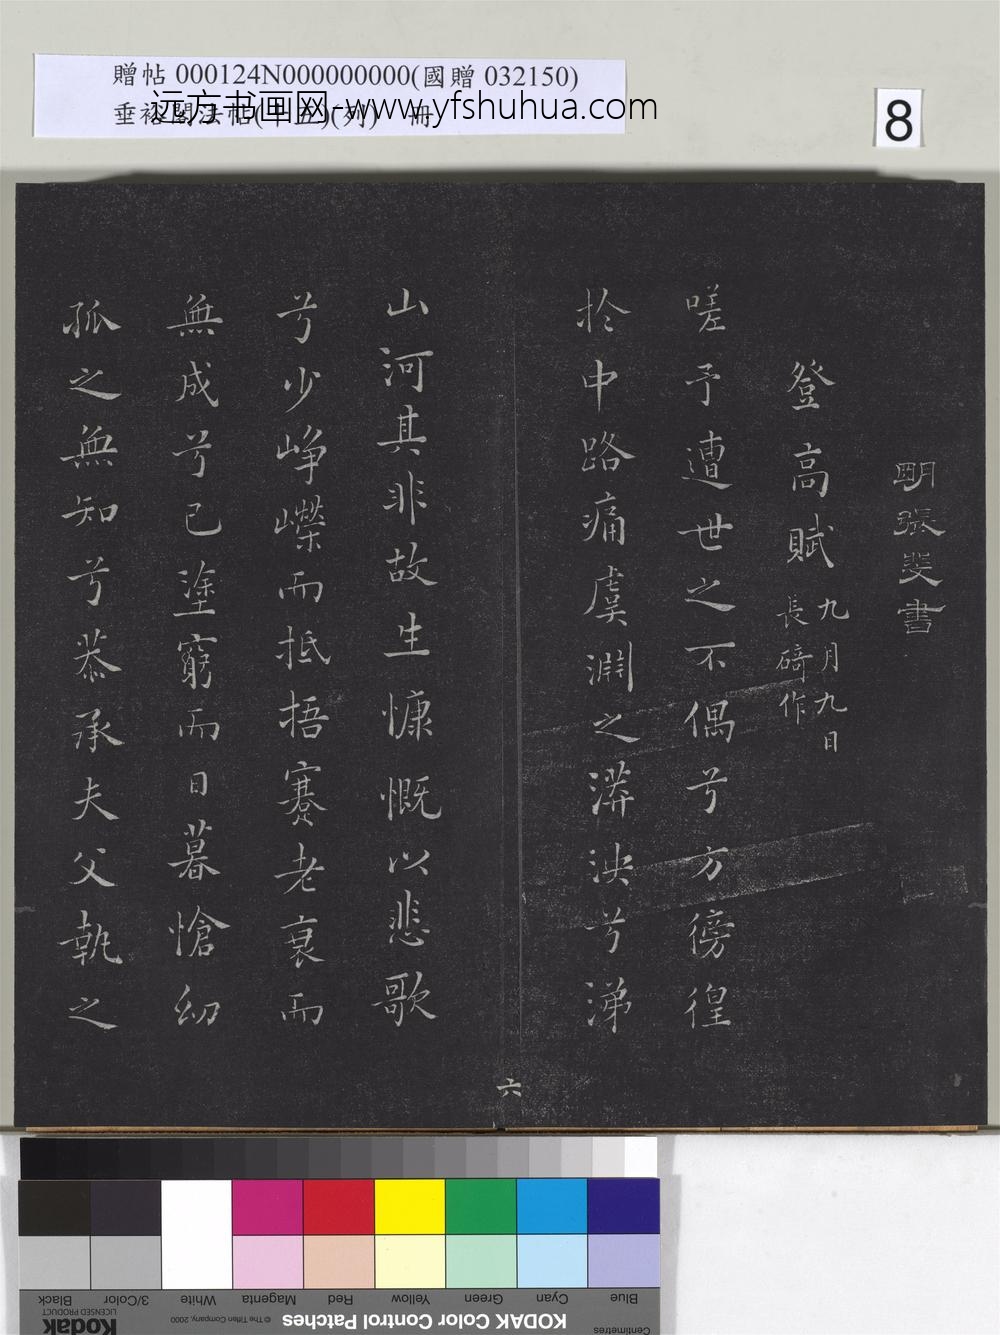 贈帖 000124N000000000(國贈 032150)
垂裕閣法帖(列) 冊
远方书画网-www.yfshuhua.com
8
明張斐書
登高賦 九月九日
長碕作
嗟予遭世之不偶兮方徬徨
於中路痛虞淵之漭泱兮涕
山河其非故生慷慨以悲歌
兮少崢嶸而抵捂蹇老衰而
無成兮已塗窮而日暮愴幼
孤之無知兮恭承夫父執之
六
Black 3/Color White Magenta Red Yellow Green Cyan Blue
LICENSED PRODUCT
Kodak
© The Tiffen Company, 2000
KODAK Color Control Patches
Centimetres